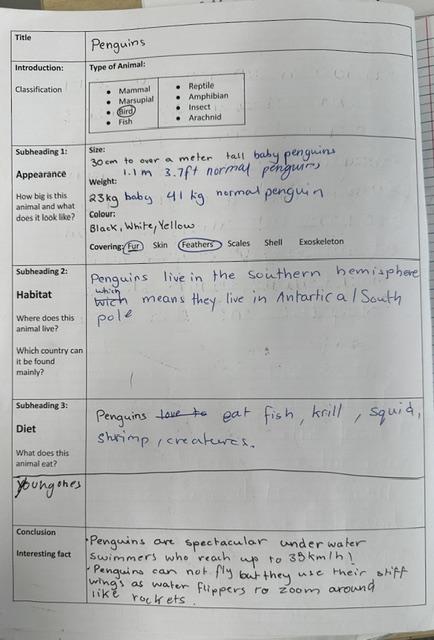 Title
Penguins
Introduction:
Classification
Type of Animal:
• Mammal
• Marsupial
• Bird
• Fish
• Reptile
• Amphibian
• Insect
• Arachnid
Subheading 1:
Appearance
How big is this
animal and what
does it look like?
Size:
30cm to over a meter tall baby penguins
1.1 m 3.7ft normal penguins
Weight:
23kg baby 41 kg normal penguin
Colour:
Black, White, Yellow
Covering: Fur Skin Feathers Scales Shell Exoskeleton
Subheading 2:
Habitat
Where does this
animal live?
Which country can
it be found
mainly?
Penguins live in the southern hemisphere
which
wich means they live in Antartica/South
pole
Subheading 3:
Diet
What does this
animal eat?
Penguins love to eat fish, krill, squid,
shrimp, creatures.
Young ones
Conclusion
Interesting fact
• Penguins are spectacular under water
swimmers who reach up to 35km/h!
• Penguins can not fly but they use their stiff
wings as water flippers to zoom around
like rockets.